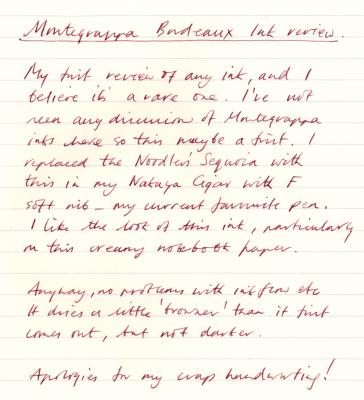 Montegrappa Bordeaux Ink review.
My first review of any ink, and I
believe it's a rare one. I've not
seen any discussion of Montegrappa
inks here so this maybe a first. I
replaced the Noodler's Sequoia with
this in my Nakaya Cigar with F
soft nib - my current favourite pen.
I like the look of this ink, particularly
on this creamy notebook paper.
Anyway, no problems with inkflow etc
It dries a little 'browner' than it first
comes out, but not darker.
Apologies for my crap handwriting!